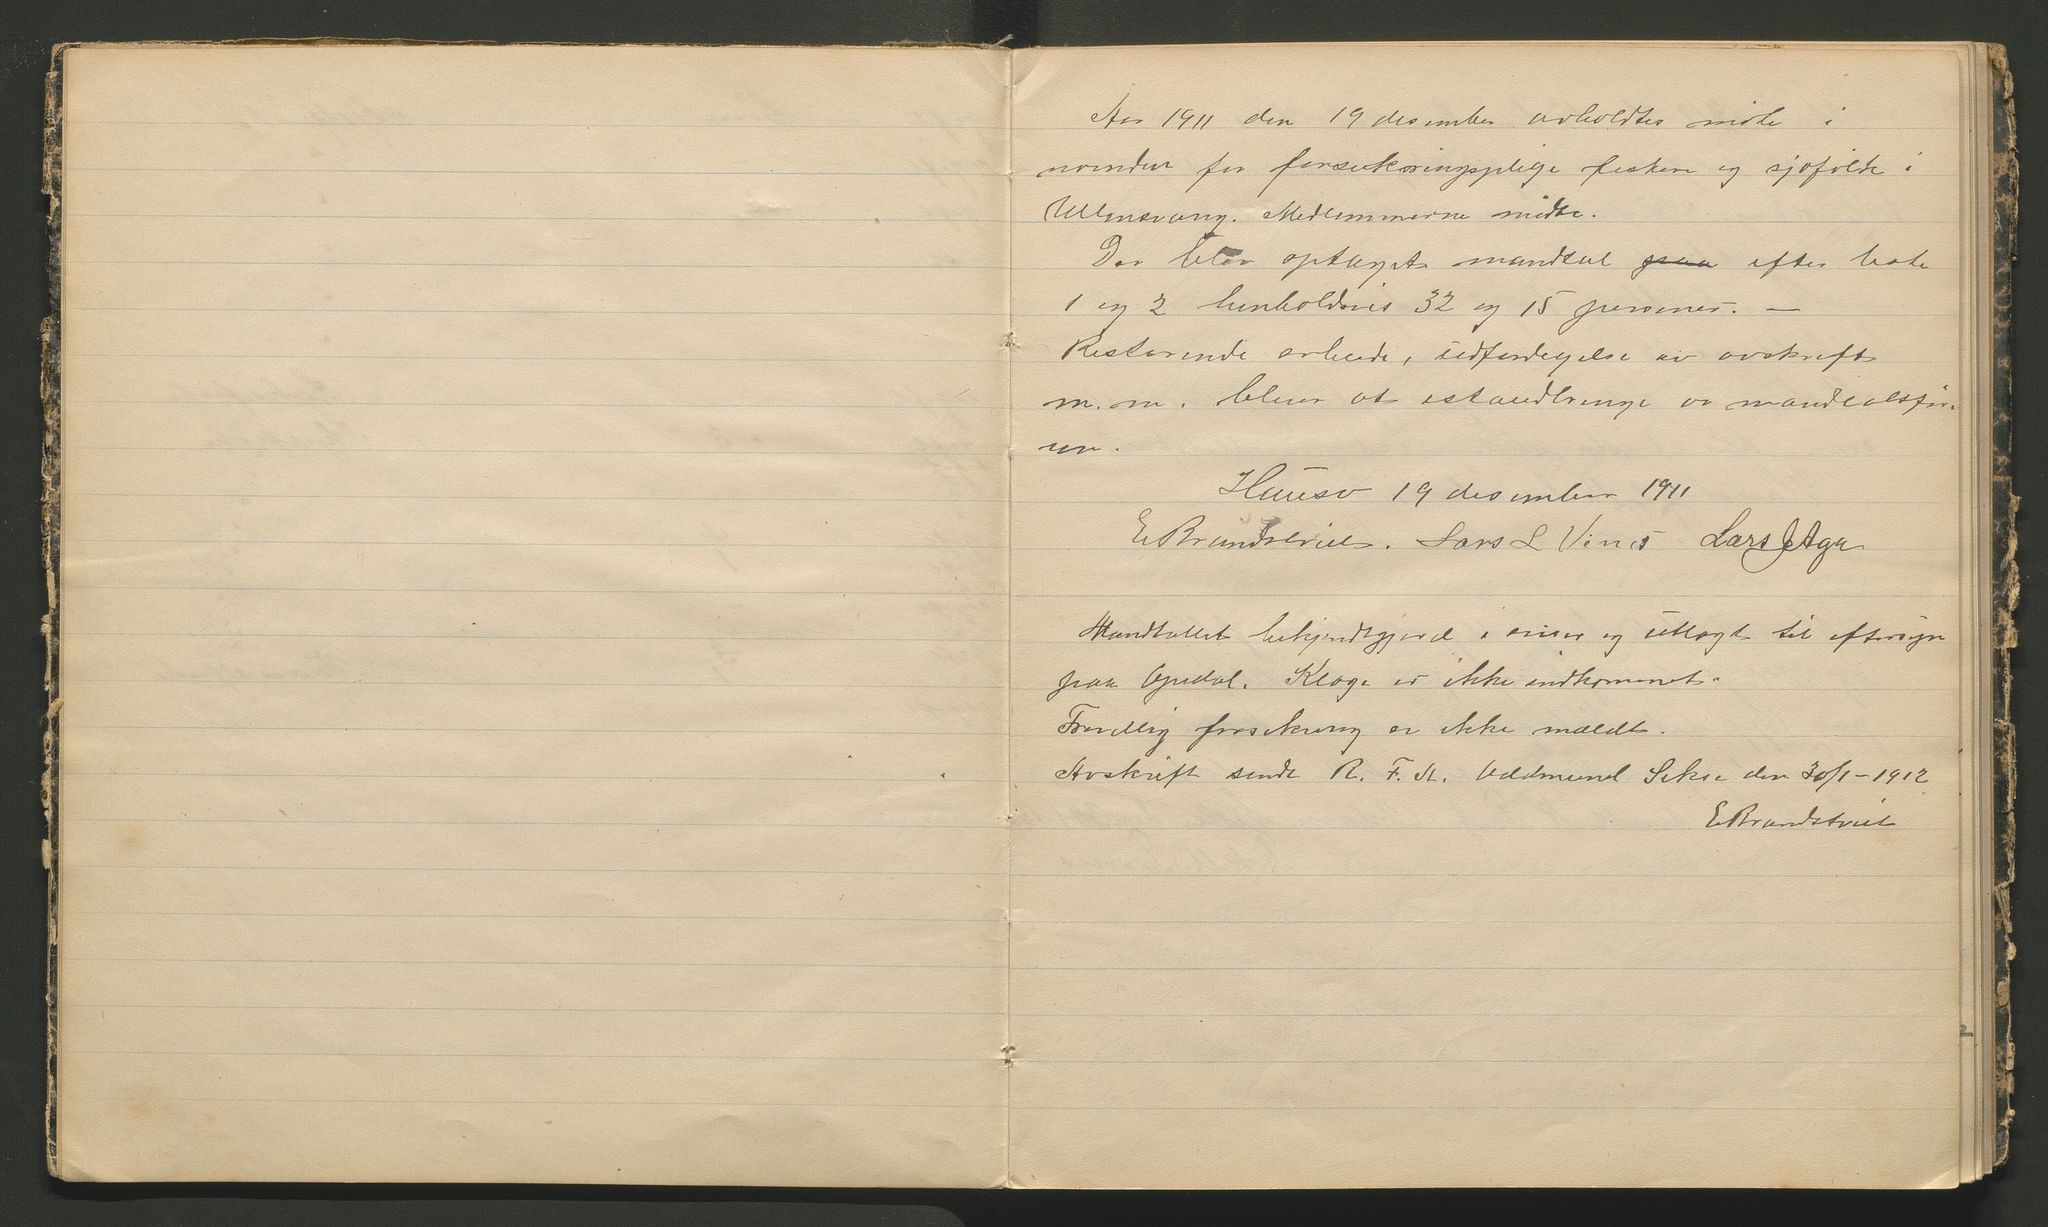 Aar 1911 den 19 desember avholdtes møte i
nemden for forsikringspligtige fiskere og sjøfolk i
Ullensvang. Medlemmerne møtte.
Der blev optaget mandtal paa efter liste
1 og 2 henholdsvis 32 og 15 personer. —
Resterende arbeide, utferdigelse av avskrift
m.m. blev at istandbringe av mandtalsfør-
ren.
Hauso 19 desember 1911
E Brandstveit. Lars L Vines Lars J Aga
Mandtallet bekjendtgjord i aviser og utlagt til eftersyn
paa Opedal. Klage er ikke indkommet.
Frivillig forsikring er ikke mældt.
Avskrift sendt R. F. A. Oddmund Sekse den 30/1-1912
E Brandstveit
2